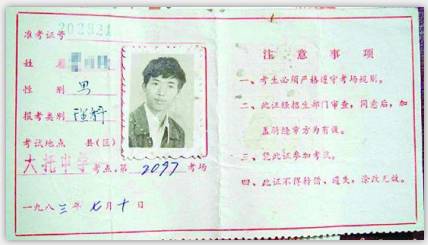 准考证号 202921
姓名
性别 男
报考类别 理
考试地点 县(区)
大托中学考点 第2097考场
一九八三年七月十日
注意事项
一、考生必须严格遵守考场规则。
二、此证经招生部门审查，同意后，加
盖钢缝章方为有效。
三、凭此证参加考试。
四、此证不得转借、遗失、涂改无效。